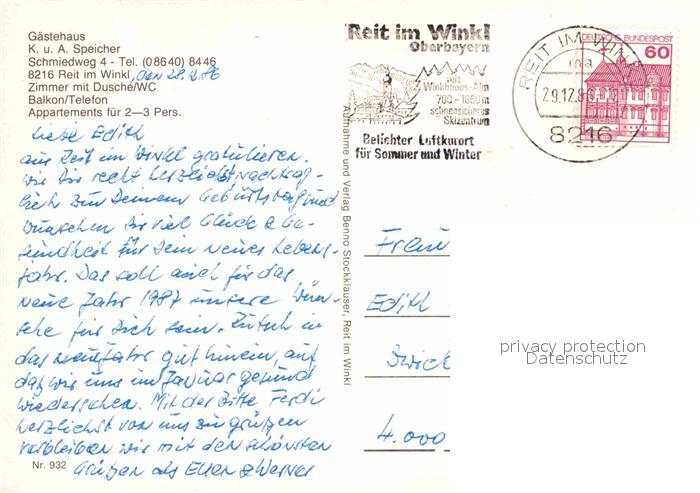 Gästehaus
K. u. A. Speicher
Schmiedweg 4 - Tel. (08640) 8446
8216 Reit im Winkl, den 28.12.86
Zimmer mit Dusche/WC
Balkon/Telefon
Appartements für 2—3 Pers.
Liebe Edith
aus Reit im Winkl gratulieren
wir Dir recht herzlichst nachträg-
lich zu Deinem Geburtstag und
wünschen Dir viel Glück & Ge-
sundheit für Dein neues Lebens-
jahr. Das soll auch für das
neue Jahr 1987 unsere Wün-
sche für Dich sein. Rutsch in
das neue Jahr gut hinein, auf
daß wir uns im Januar gesund
wiedersehen. Mit der Bitte Ferdi
herzlichst von uns zu grüßen
verbleiben wir mit den schönsten
Grüßen als Ellen & Werner
Nr. 932
Aufnahme und Verlag Benno Stockklauser, Reit im Winkl
Reit im Winkl
Oberbayern
mit
Winklmoos-Alm
700-1860m
schneesicheres
Skizentrum
Beliebter Luftkurort
für Sommer und Winter
REIT IM WINKL
ma
29.12.86
8216
DEUTSCHE BUNDESPOST
60
Frau
Edith
4.000
privacy protection
Datenschutz